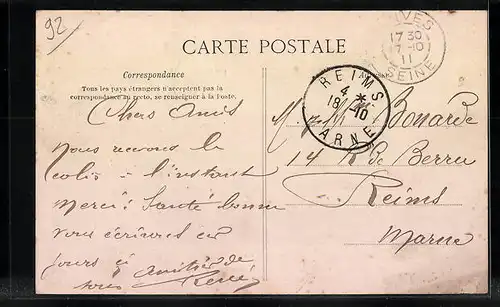 92
CARTE POSTALE
Correspondance
Tous les pays étrangers n'acceptent pas la
correspondance au recto, se renseigner à la Poste.
Chers Amis
Nous recevons le
Colis à l'instant
merci! Santé bonne
Vous écrirons ces
jours ci Amitiés de
tous René
VES
17 30
17 -10
11
SEINE
REIMS
4 *
18 10
MARNE
M. & Mme Bonarde
14 R. de Berru
Reims
Marne